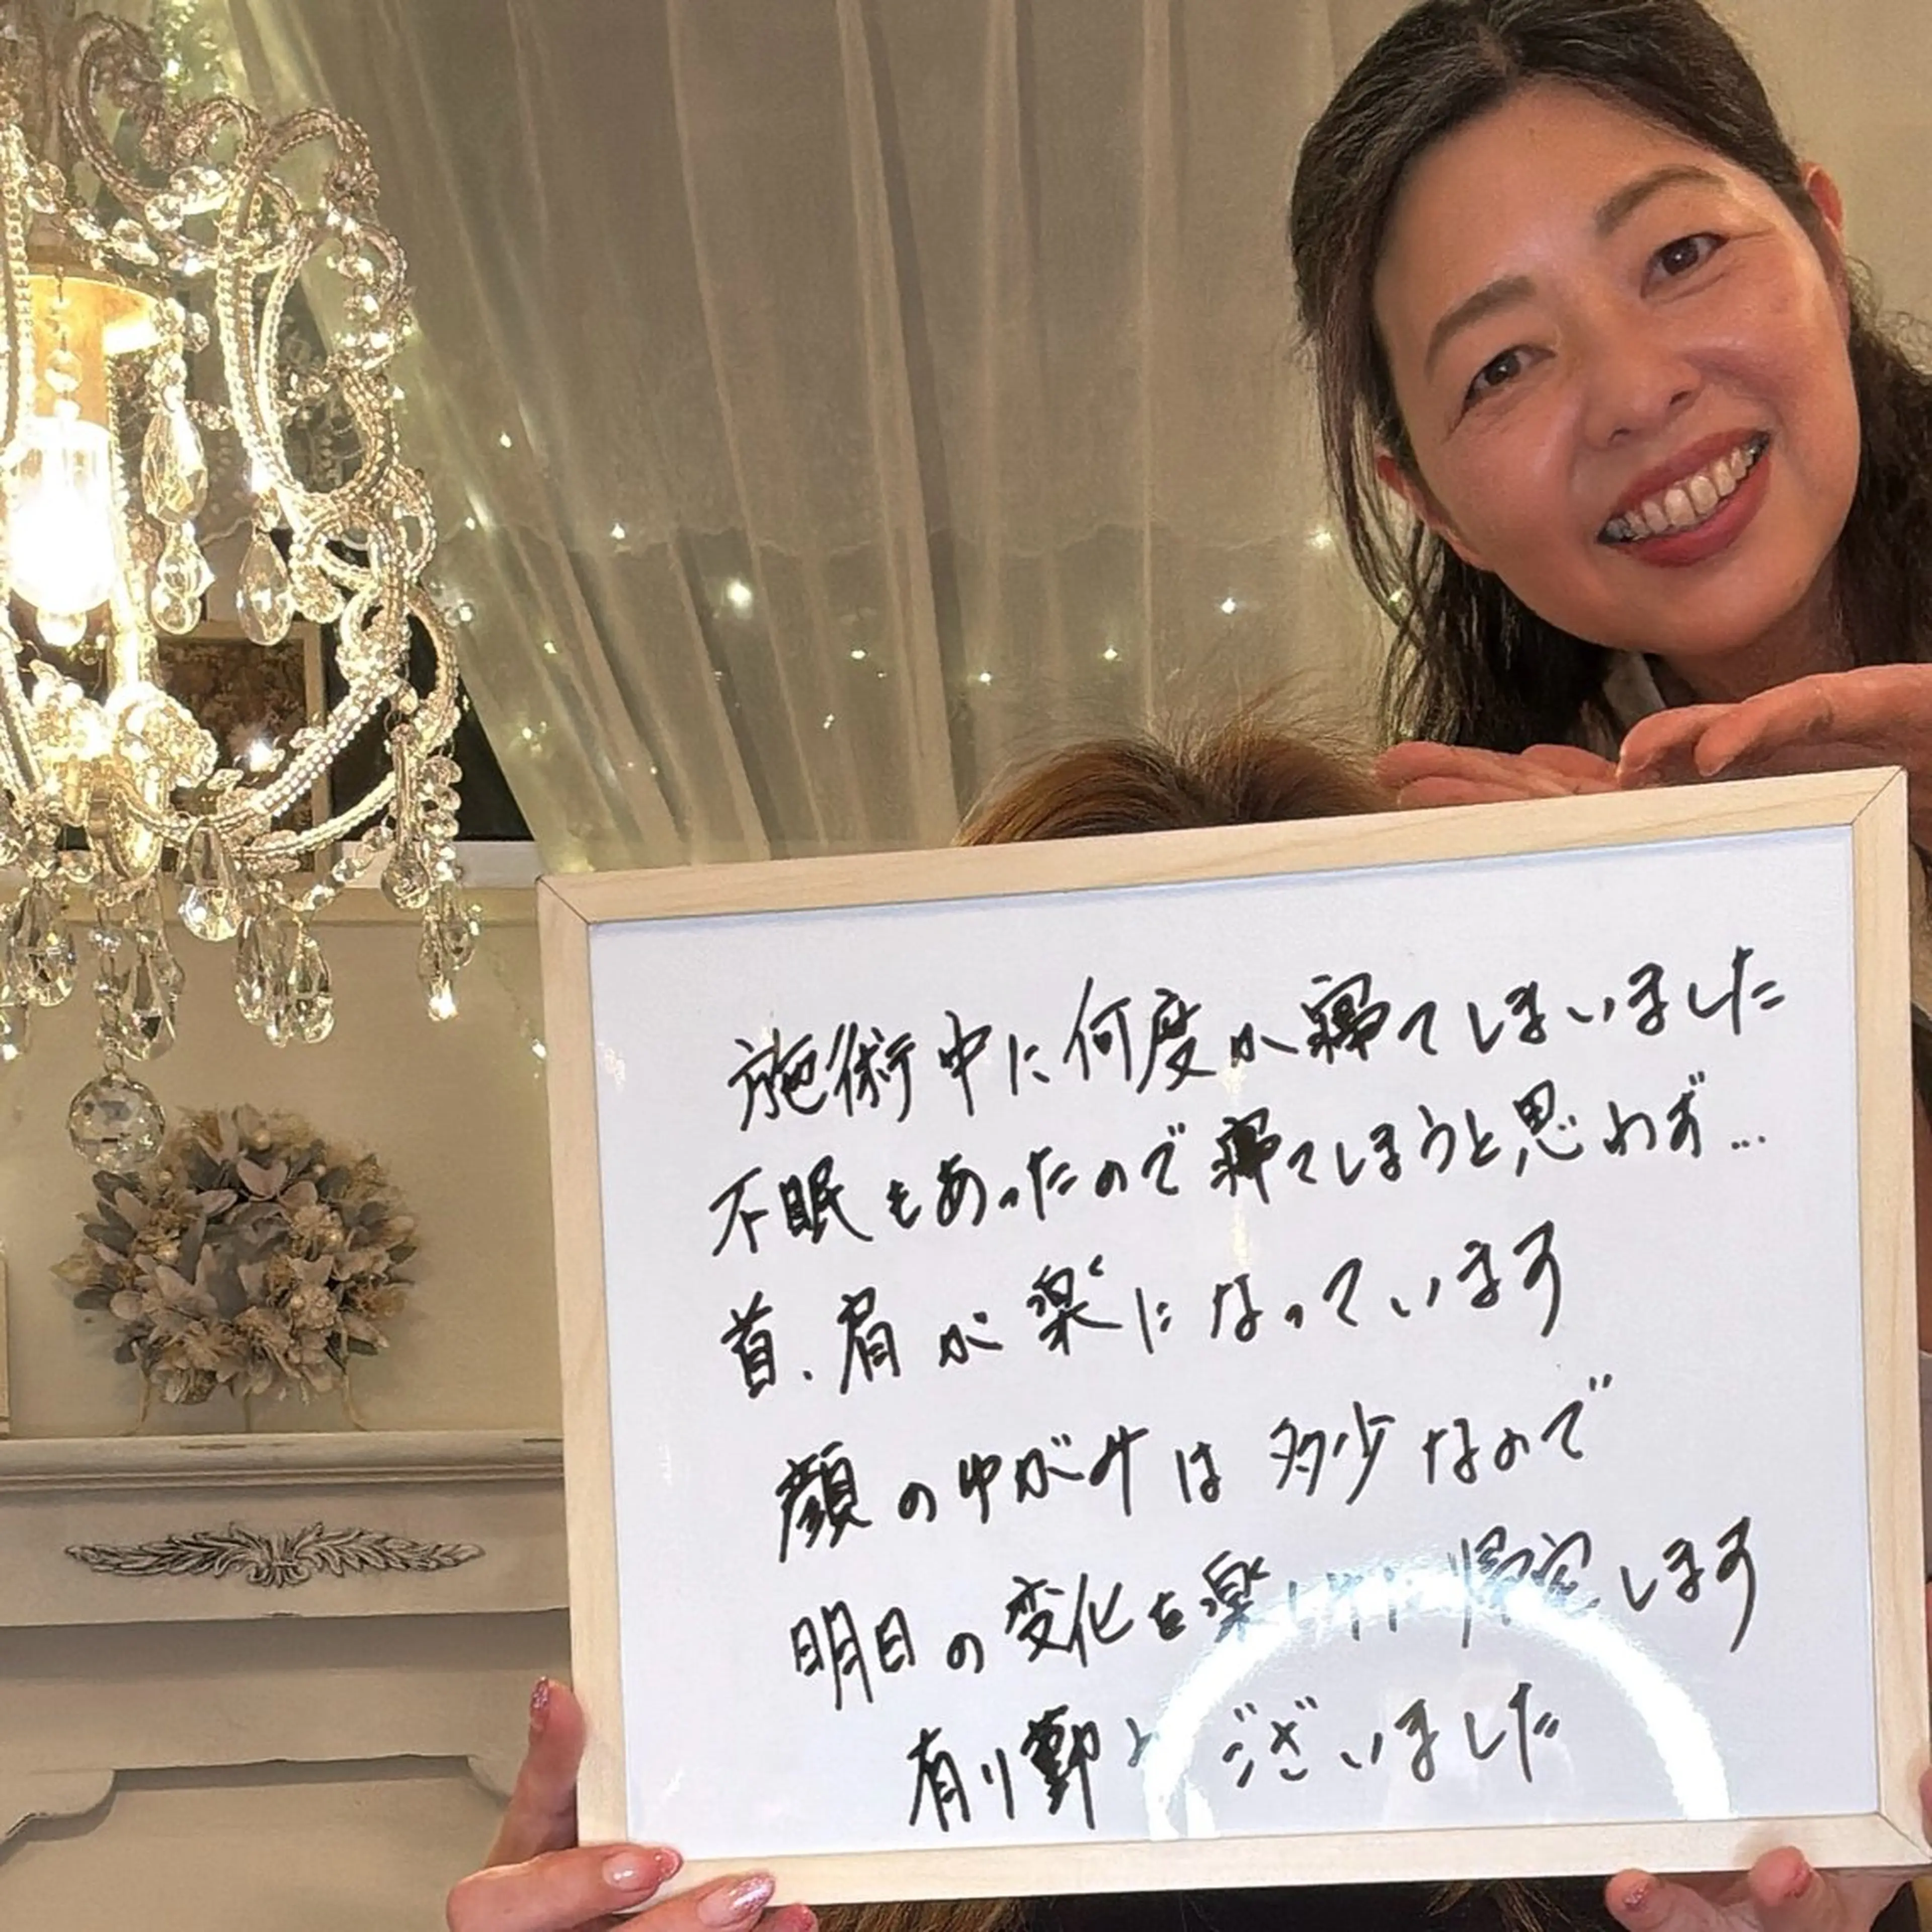 施術中に何度か寝てしまいました
不眠もあったので寝てしまうと思わず…
首、肩が楽になっています
顔のゆがみは多少なので
明日の変化を楽しみに帰宅します
有り難とございました